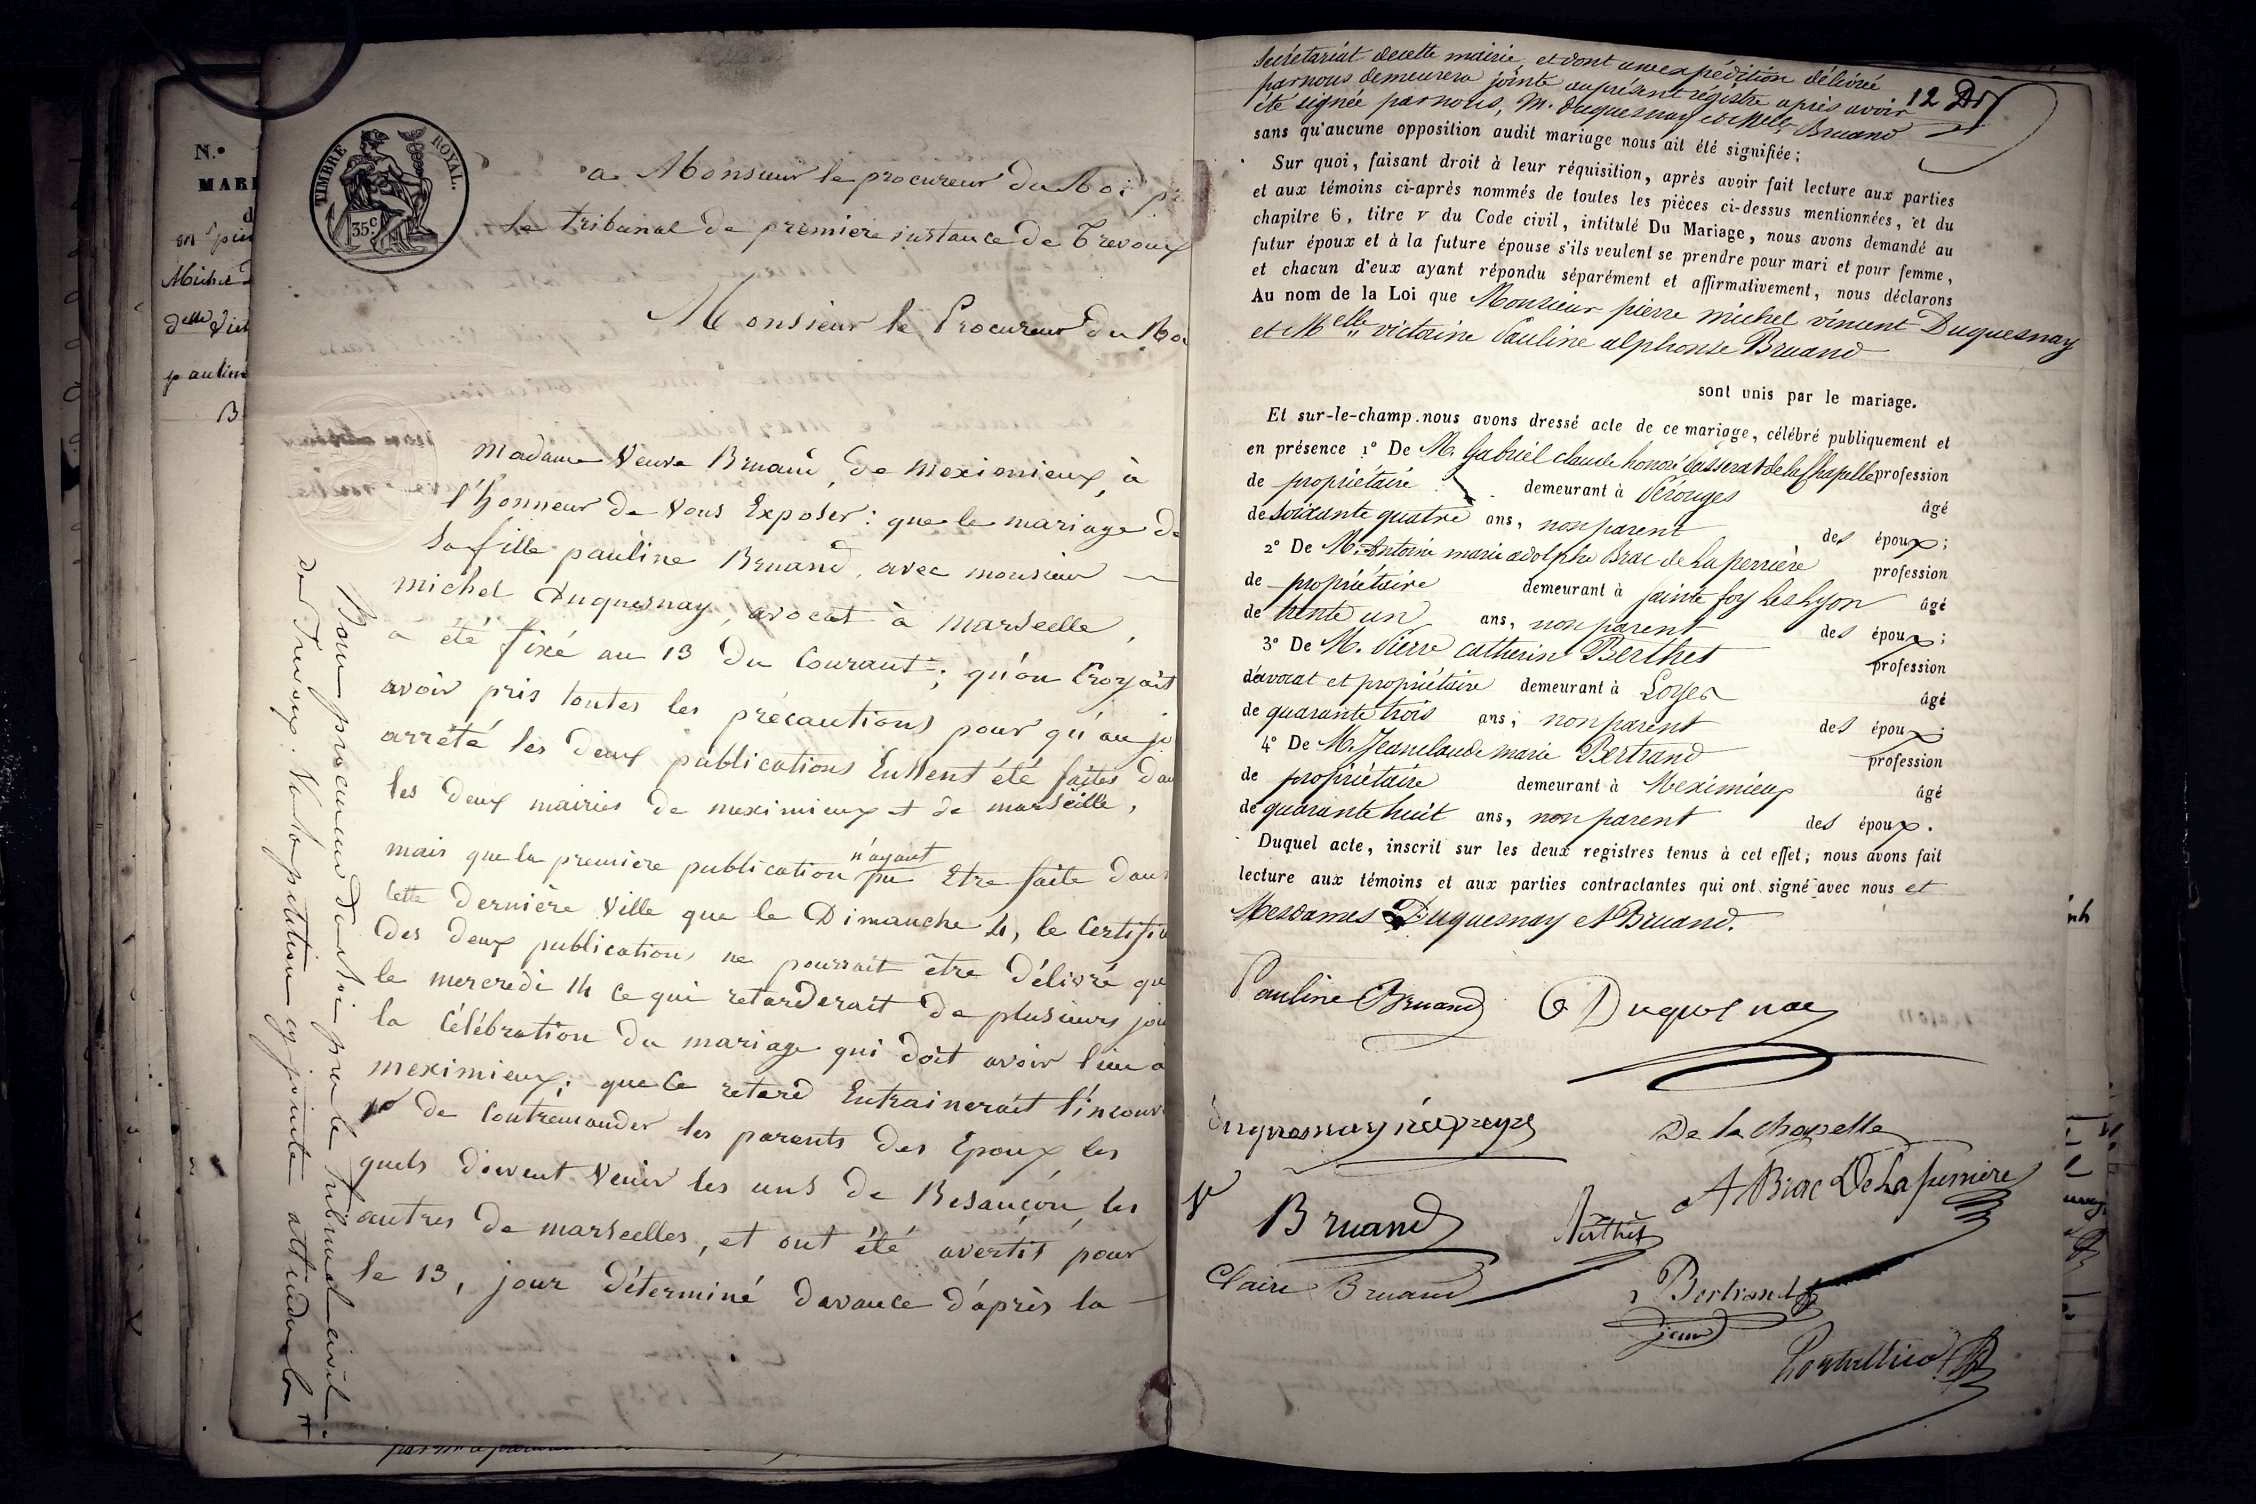 N.º
MARI
d
Michel D
delle Vict
pauline
B
TIMBRE ROYAL.
35 c
a Monsieur le procureur du Roi pr
le tribunal de premiere instance de Trevoux
Monsieur le Procureur du Ro
Madame Veuve Bruand, de meximieux, à
l'honneur de Vous Exposer: que le mariage de
sa fille pauline Bruand, avec monsieur
michel Duquesnay, avocat à marseille,
a été fixé au 13 du Courant; qu'on Croyait
avoir pris toutes les précautions pour qu'au jo
arrêté les deux publications Eussent été faites dan
les deux mairies de meximieux et de marseille,
mais que la premiere publication n'ayant pu Etre faite dans
Cette dernière Ville que le Dimanche 4, le Certific
des deux publications ne pourrait être délivré que
le mercredi 14 ce qui retarderait de plusieurs jou
la Célébration du mariage qui doit avoir lieu a
meximieux; que ce retard Entrainerait l'inconv
de Contremander les parents des Epoux les
quels doivent Venir les uns de Besançon, les
autres de marseilles, et ont été avertis pour
le 13, jour déterminé davance d'après la
Nous procureur du Roi près le tribunal civil
de Trevoux. Vu la petition cy jointe attendu la
secrétariat de cette mairie, et dont une expédition délivrée
par nous demeurera jointe au présent régistre après avoir
été signée par nous, M. Duquesnay et Melle Bruand
12
sans qu'aucune opposition audit mariage nous ait été signifiée;
Sur quoi, faisant droit à leur réquisition, après avoir fait lecture aux parties
et aux témoins ci-après nommés de toutes les pièces ci-dessus mentionnées, et du
chapitre 6, titre v du Code civil, intitulé Du Mariage, nous avons demandé au
futur époux et à la future épouse s'ils veulent se prendre pour mari et pour femme,
et chacun d'eux ayant répondu séparément et affirmativement, nous déclarons
Au nom de la Loi que Monsieur pierre michel vincent Duquesnay
et Melle victorine Pauline alphonse Bruand
sont unis par le mariage.
Et sur-le-champ nous avons dressé acte de ce mariage, célébré publiquement et
en présence 1º De M. Gabriel claude honoré Passerat de la Chapelle profession
de propriétaire demeurant à Pérouges âgé
de soixante quatre ans, non parent des époux;
2º De M. Antoine marie adolphe Brac de La perrière profession
de propriétaire demeurant à Sainte foy Les Lyon âgé
de trente un ans, non parent des époux;
3º De M. Pierre catherin Berthet profession
d'avocat et propriétaire demeurant à Loyes âgé
de quarante trois ans, non parent des époux;
4º De M. Jean claude marie Bertrand profession
de propriétaire demeurant à Meximieux âgé
de quarante huit ans, non parent des époux.
Duquel acte, inscrit sur les deux registres tenus à cet effet, nous avons fait
lecture aux témoins et aux parties contractantes qui ont signé avec nous et
Mesdames Duquesnay et Bruand.
Pauline Bruand Duquesnay
Duquesnay née De la Chapelle
Ve Bruand A Brac De La perrière
Berthet
Claire Bruand
Bertrand
jeune